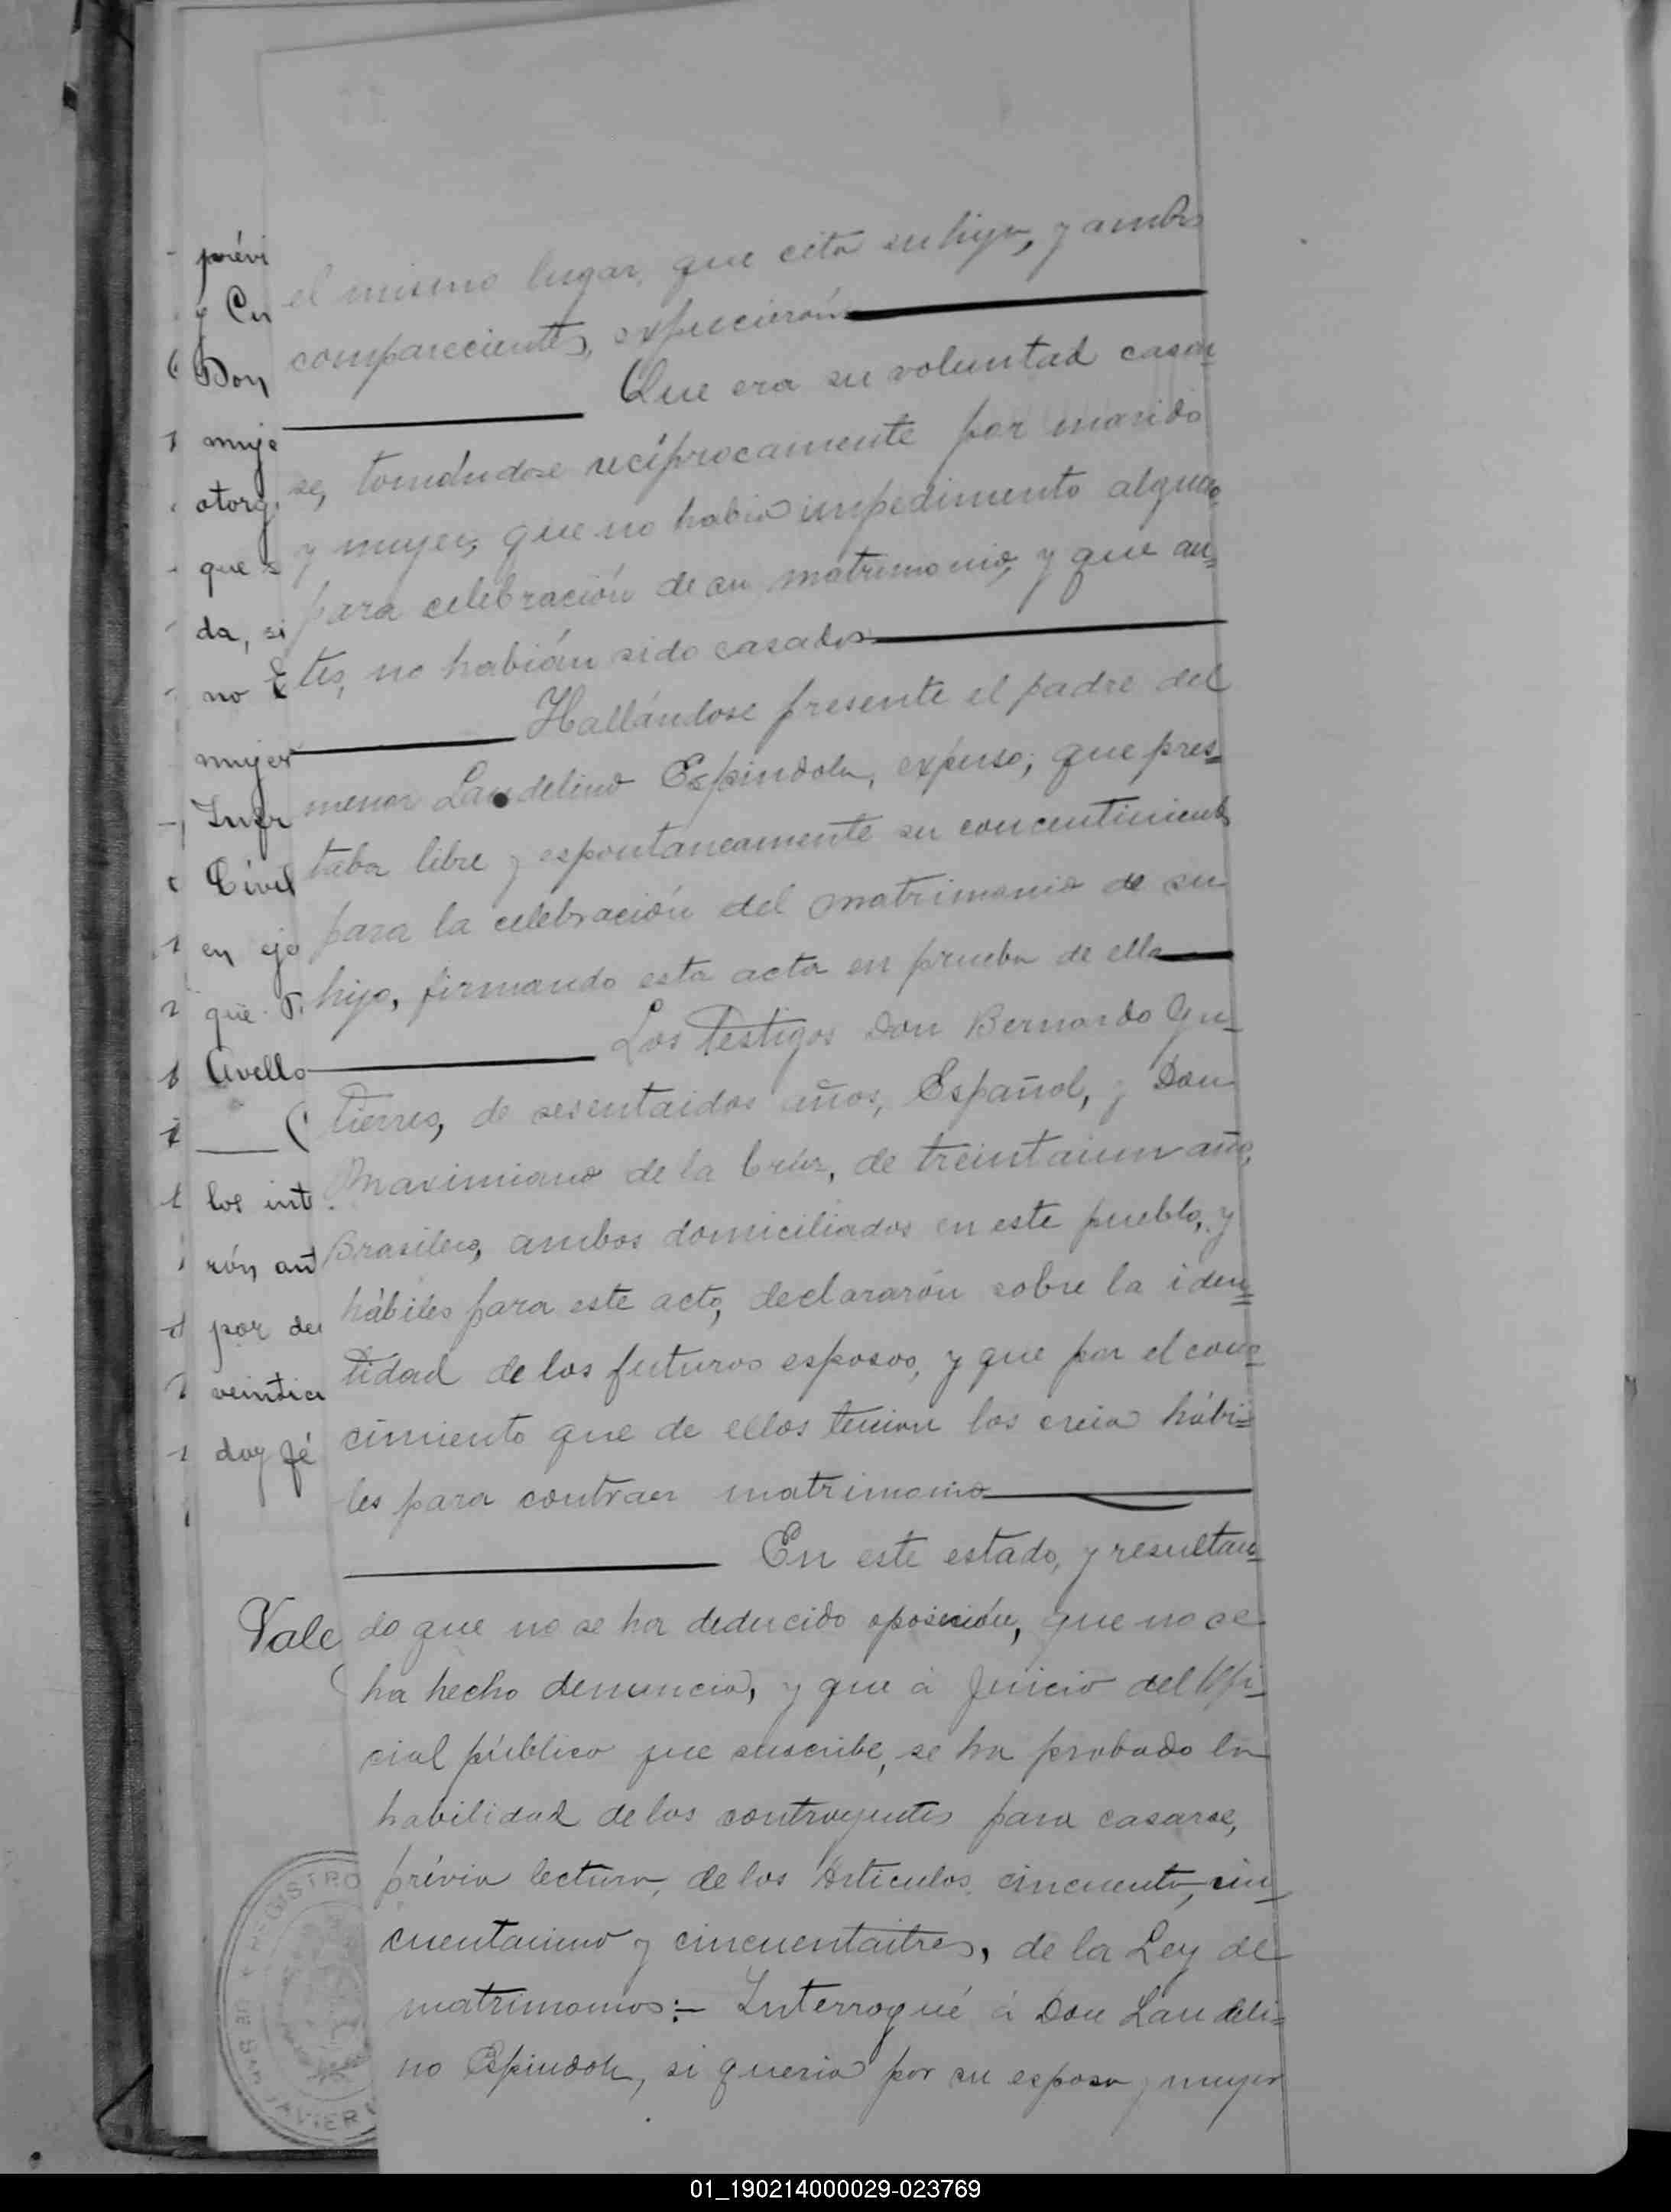 el mismo lugar, que cita su hija, y ambos
comparecientes, expucierón
Que era su voluntad casar
se, tomándose recíprocamente por marido
y mujer, que no habia impedimento alguno,
para celebración de su matrimonio, y que an=
tes, no habián sido casados
Hallándose presente el padre del
menor Laudelino Espindola, expuso; que pres=
taba libre y espontaneamente su concentimiento
para la celebración del matrimonio de su
hijo, firmando esta acta en prueba de ello
Los Testigos Don Bernardo Gu-
tierres, de sesentaidos años, Español, y Don
Maximiano de la Crúz, de treintaiun años,
Brasilero, ambos domiciliados en este pueblo, y
hábiles para este acto, declararón sobre la iden=
tidad de los futuros esposos, y que por el cono=
cimiento que de ellos tenian los creia hábi=
les para contraer matrimonio
En este estado, y resultan=
Vale do que no se ha deducido oposición, que no se
ha hecho denuncia, y que á juicio del Ofi-
cial público que suscribe, se ha probado la
habilidad de los contrayentes para casarse,
prévia lectura, de los Articulos cincuenta, cin-
cuentaiuno y cincuentaitres, de la Ley de
matrimonios:- Interrogué á Don Laudeli=
no Espindola, si queria por su esposa y mujer
prévi
y Cu
Don
muje
otorg
que s
da, si
no E
mujer
Infr
Civil
en eje
que
Avello
los int
rón ant
por de
veintici
doy fé
REGISTRO
SAN JAVIER
01_190214000029-023769